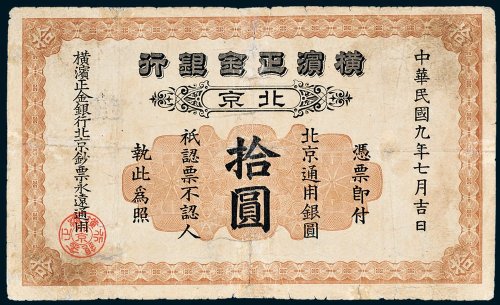 拾
拾
行銀金正濱橫
京北
中華民國九年七月吉日
憑票即付
北京通用銀圓
拾圓
祇認票不認人
執此為照
橫濱正金銀行北京鈔票永遠通用
拾
拾